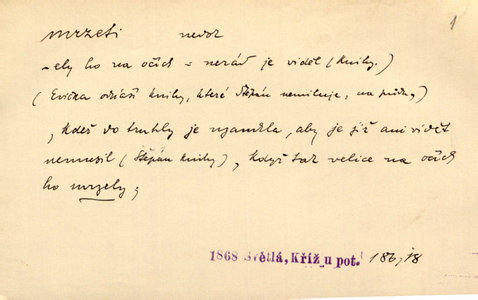 mrzeti nedok 1
-ely ho na očích = nerad je viděl (knihy.)
(Evička odnáší knihy, které Štěpán nemiluje, na půdu,)
, Kdež do truhly je uzamkla, aby je již ani vidět
nemusil (Štěpán knihy), když tak velice na očích
ho mrzely,
1868 Světlá, Kříž u pot. 186,18